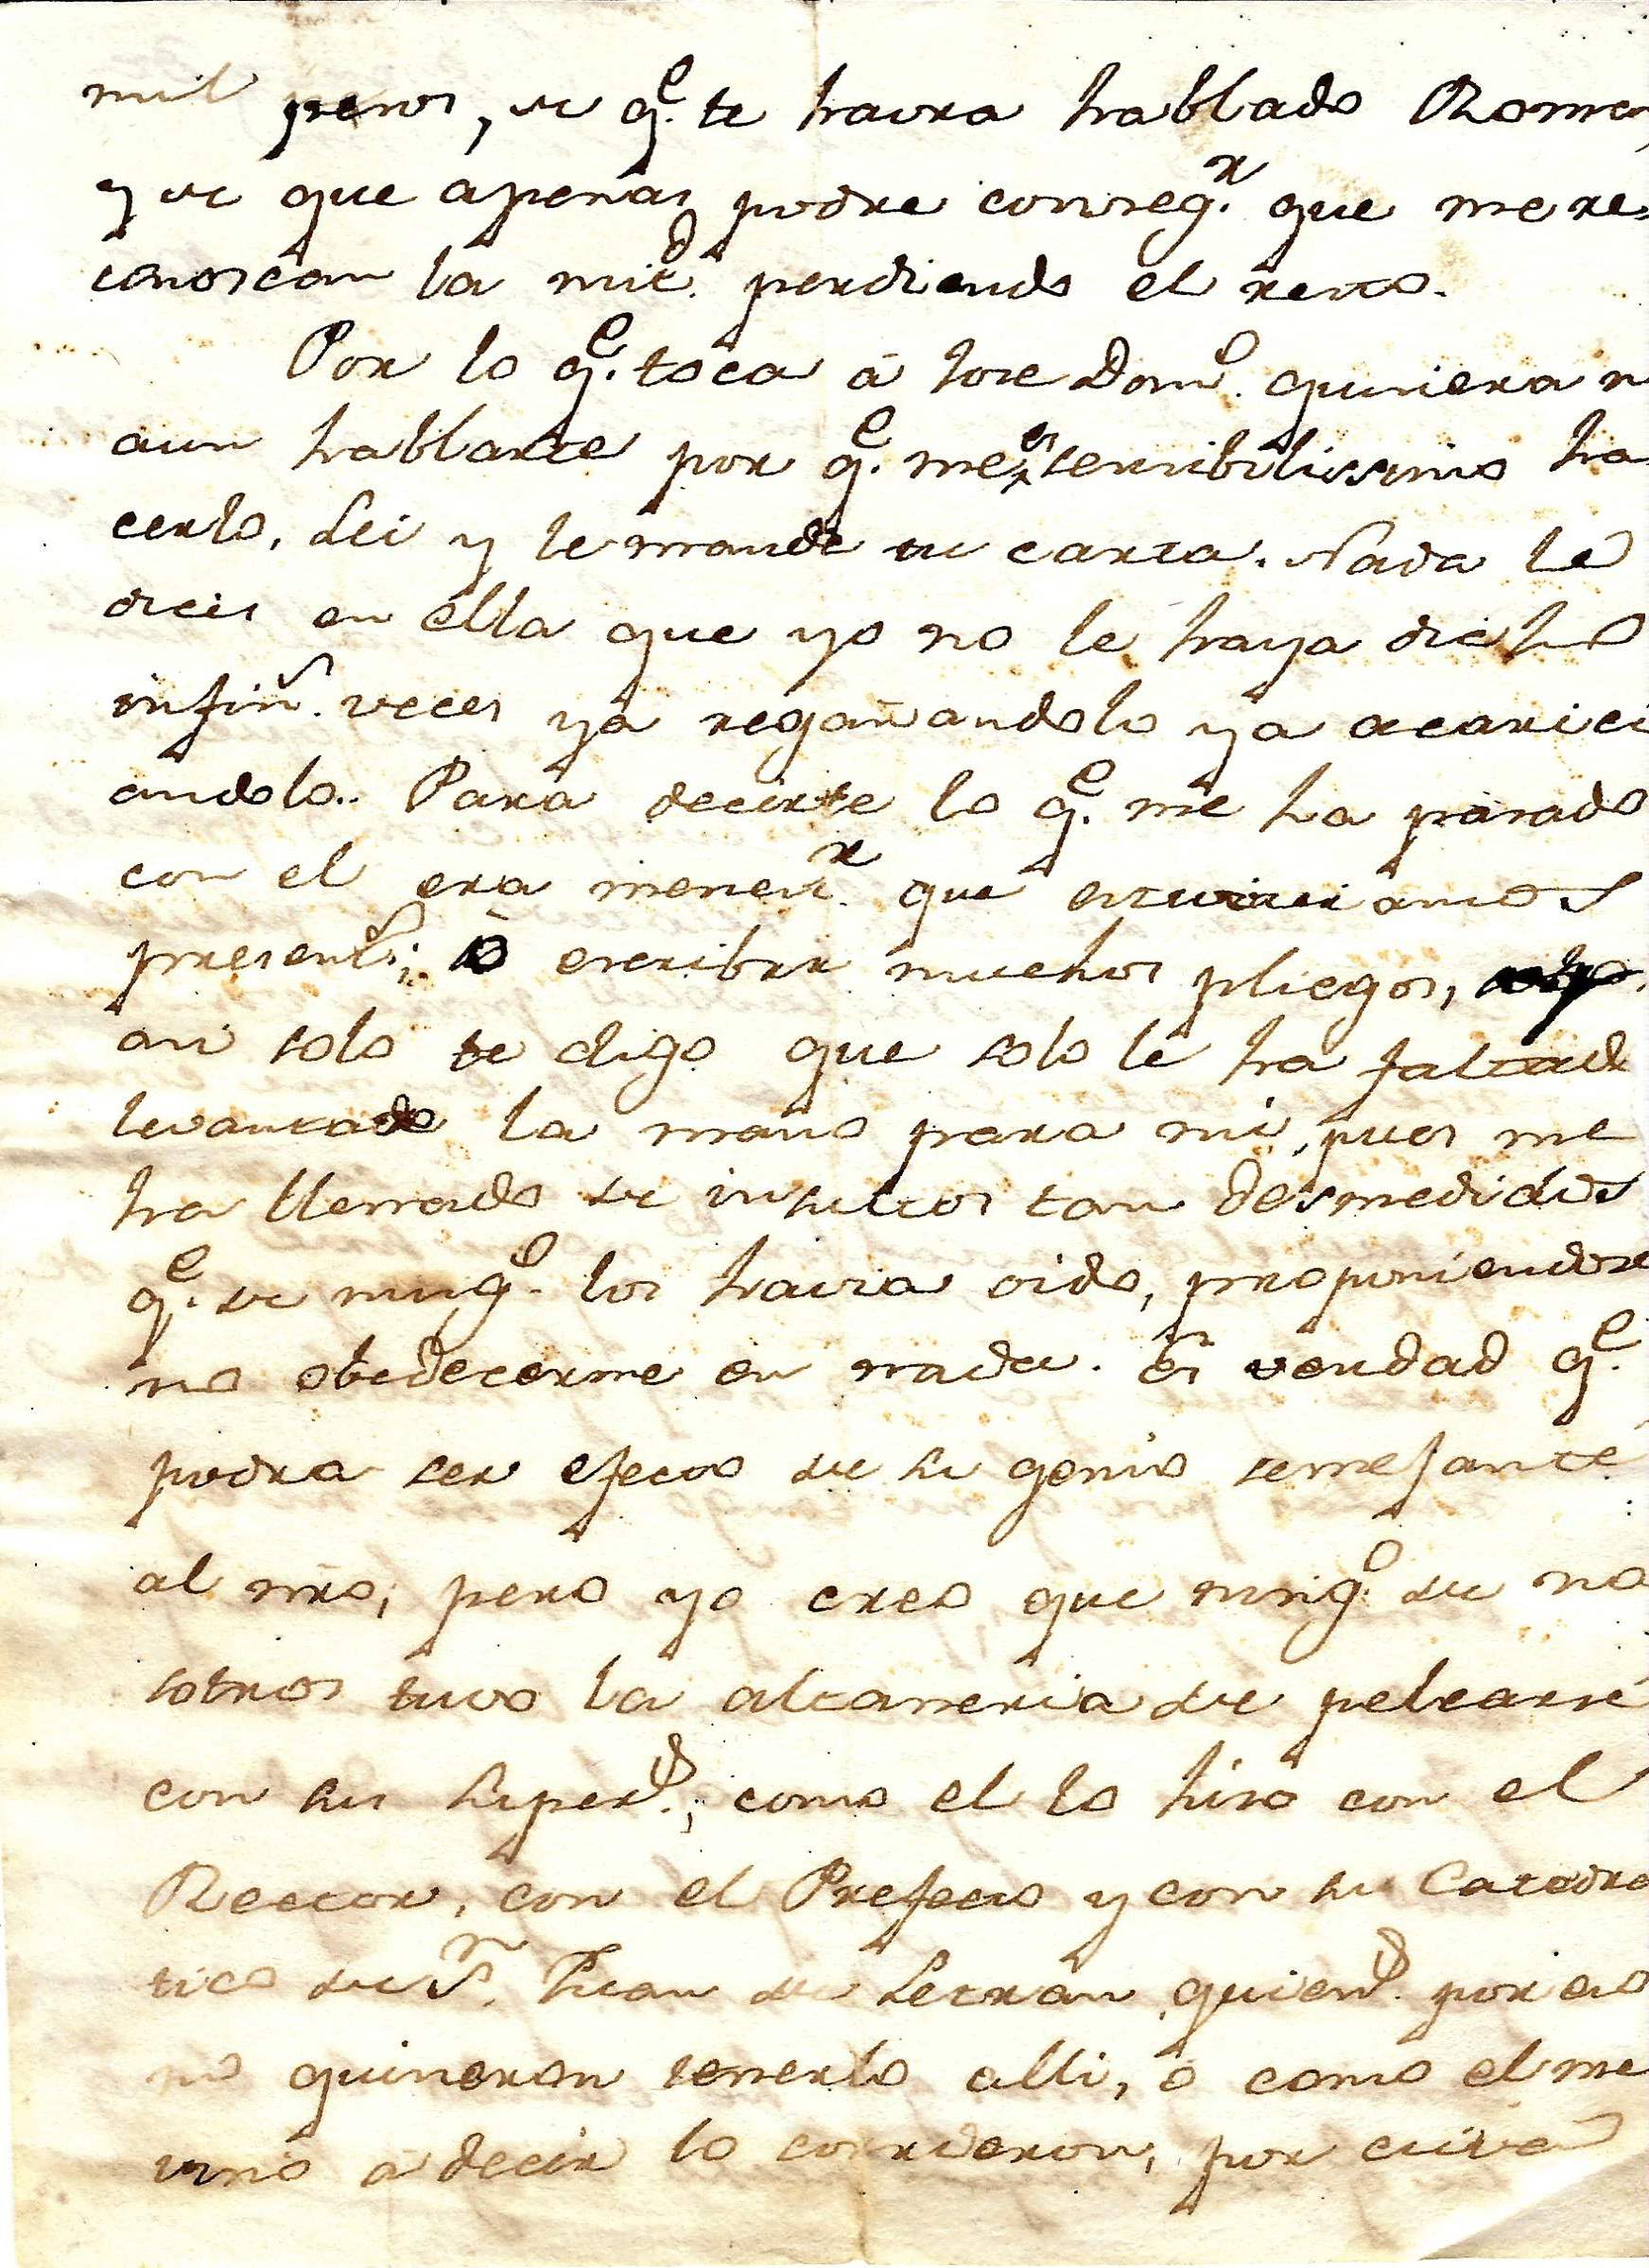 mil pesos, de q.e te havra hablado Romer
y de que apenas podre conseg.r que me re-
conoscan la mit.d perdiendo el resto.
Por lo q.e toca á Jose Dom.o quisiera n
aun hablarte por q.e me es sensibilissimo ha
cerlo. Lei y le mandé tu carta. Nada le
dices en ella que yo no le haya dicho
infin.s veces ya regañandolo ya acarici
andolo. Para decirte lo q.e me ha pasado
con el era menest.r que estuvieramos
present.s; ó escribir muchos pliegos,
asi solo te digo que solo le ha faltado
levantado la mano para mi, pues me
ha llenado de insultos tan desmedidos
q.e de ning.o los havia oido, proponiendose
no obedecerme en nada. Es verdad q.e
podra ser efecto de su genio semejante
al nro, pero yo creo que ning.o de no
sotros tuvo la altaneria de pelearse
con sus super.s, como el lo hiso con el
Rector, con el Prefecto y con su Catedra
tico de S.n Juan de Letran, quien.s por eso
no quisieron tenerlo alli, o como el me
vino á decir lo corrieron, por cuia